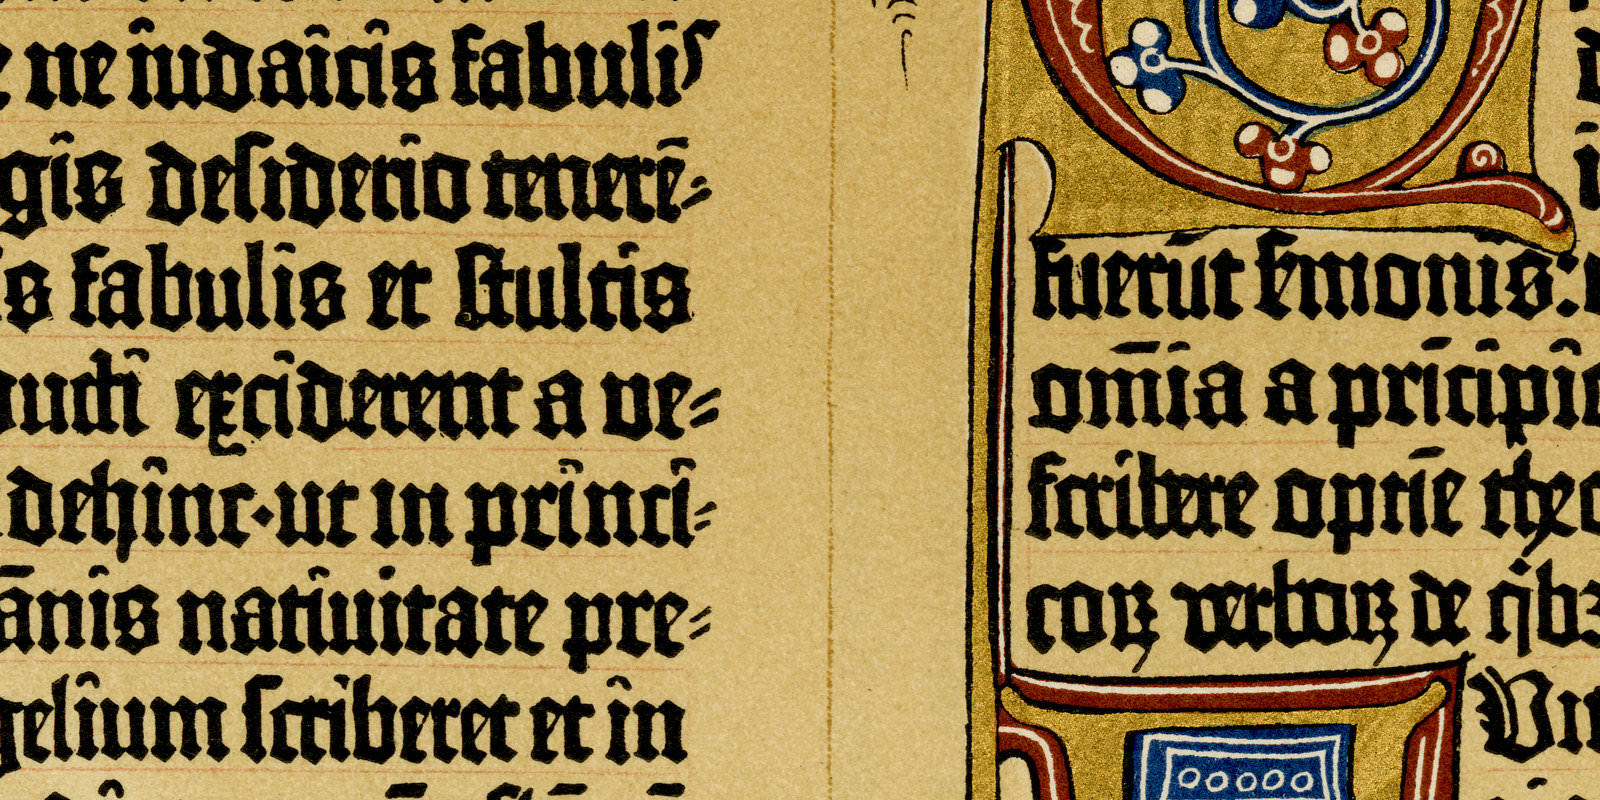 ne iudaicis fabulis
gis desiderio tenerē=
is fabulis et stultis
exciderent a ve=
dehinc·ut in princi=
ānis nativitate pre=
gelium scriberet et in
fuerūt sermonis:
om̄ia a prīcipio
scribere optīe theo
coꝝ verboꝝ de q̇bꝫ